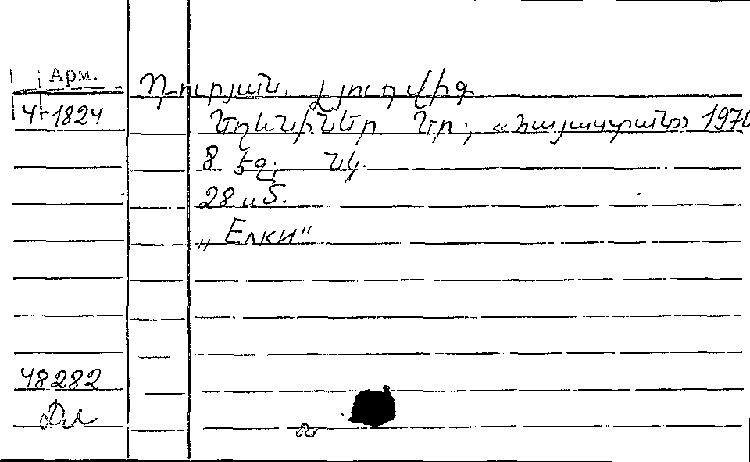 Арм.
Դուրյան, Լյուդվիգ
4-1824
Եղևնիներ. Եր., «Հայաստան» 1970
8 էջ. նկ.
28 սմ.
„Елки"
48282